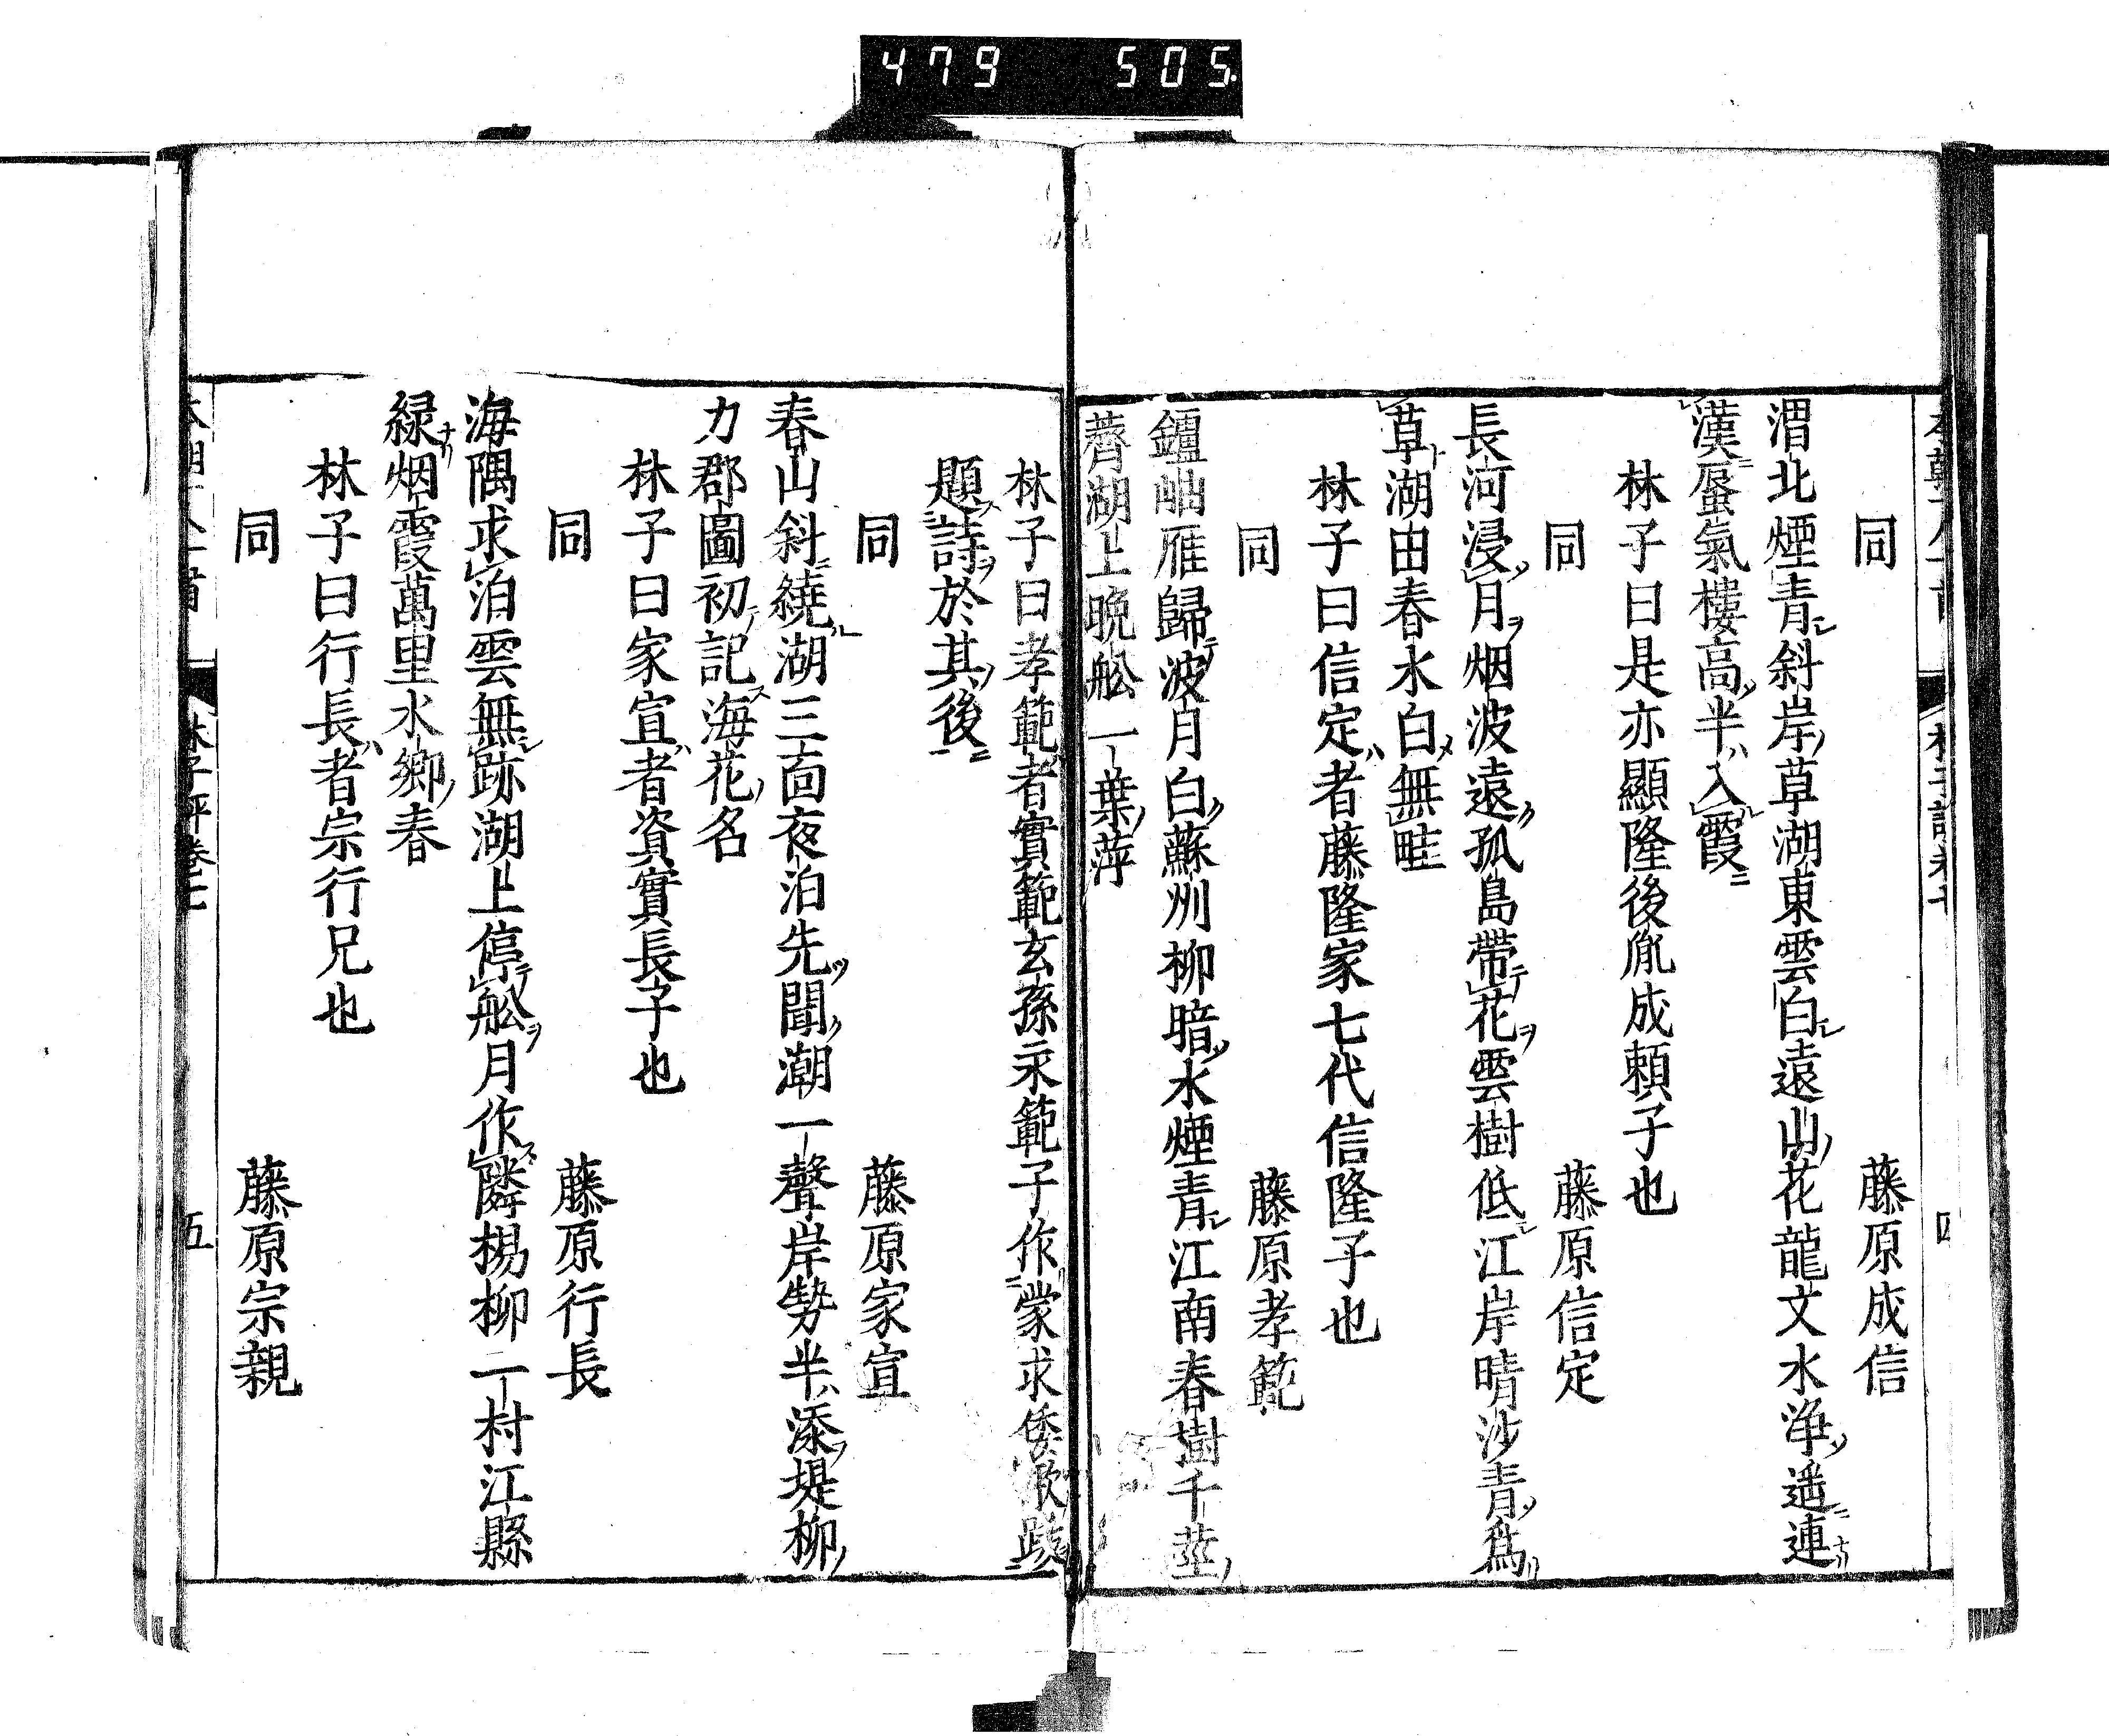 479 505
同 藤原成信
渭北煙青斜岸草湖東雲白遠山花龍文水浄遥連
漢蜃氣樓高半入霞
林子曰是亦顯隆後胤成頼子也
同 藤原信定
長河浸月烟波遠孤島帶花雲樹低江岸晴沙青為
草湖田春水白無畦
林子曰信定者藤隆家七代信隆子也
同 藤原孝範
岫雁歸波月白蘇州柳暗水煙青江南春樹千莖
薺湖上晩舩一葉萍
林子曰孝範者實範玄孫永範子作蒙求倭歌跋
題詩於其後
同 藤原家宣
春山斜繞湖三面夜泊先聞潮一聲岸勢半添堤柳
力郡圖初記海花名
林子曰家宣者資實長子也
同 藤原行長
海隅求泊雲無跡湖上停舩月作隣楊柳一村江縣
緑烟霞萬里水郷春
林子曰行長者宗行兄也
同 藤原宗親
林子評卷七 五